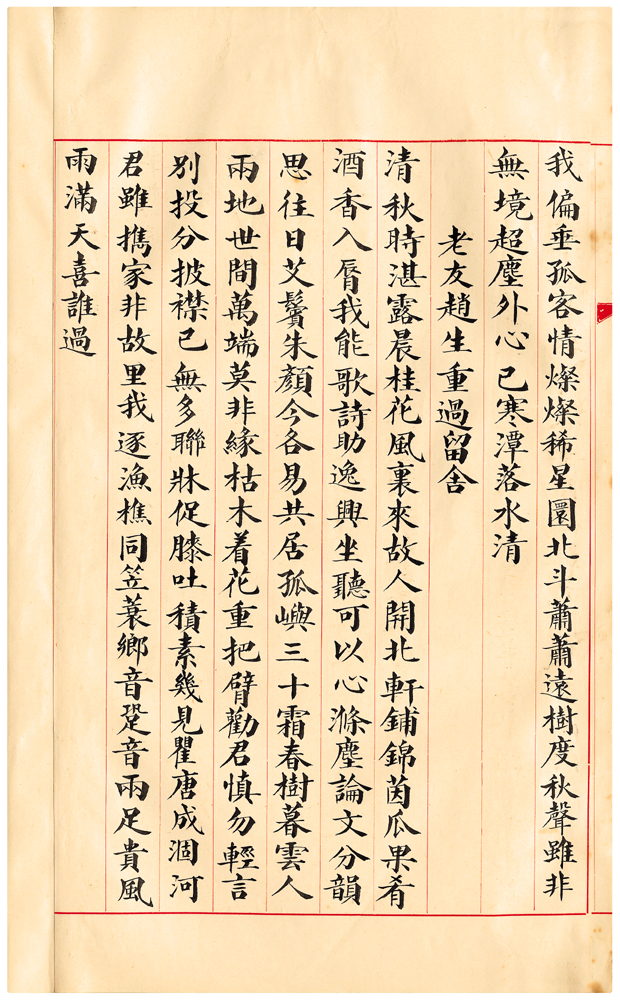 我偏垂孤客情燦燦稀星圜北斗蕭蕭遠樹度秋聲雖非
無境超塵外心已寒潭落水清
老友趙生重過留舍
清秋時湛露晨桂花風裏來故人開北軒鋪錦茵瓜果肴
酒香入脣我能歌詩助逸興坐聽可以心滌塵論文分韻
思往日艾鬢朱顏今各易共居孤嶼三十霜春樹暮雲人
兩地世間萬端莫非緣枯木着花重把臂勸君慎勿輕言
別投分披襟已無多聯牀促膝吐積素幾見瞿唐成涸河
君雖擕家非故里我逐漁樵同笠蓑鄉音跫音兩足貴風
雨滿天喜誰過